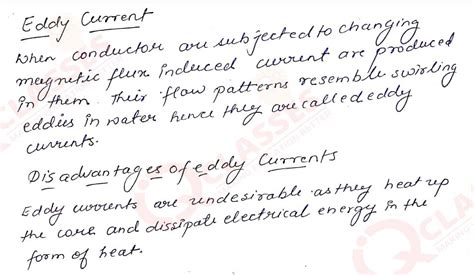 Eddy Current
When conductor are subjected to changing
magnetic flux induced current are produced
in them. Their flow patterns resemble swirling
eddies in water hence they are called eddy
currents.
Disadvantages of eddy Currents
Eddy currents are undesirable as they heat up
the core and dissipate electrical energy in the
form of heat.